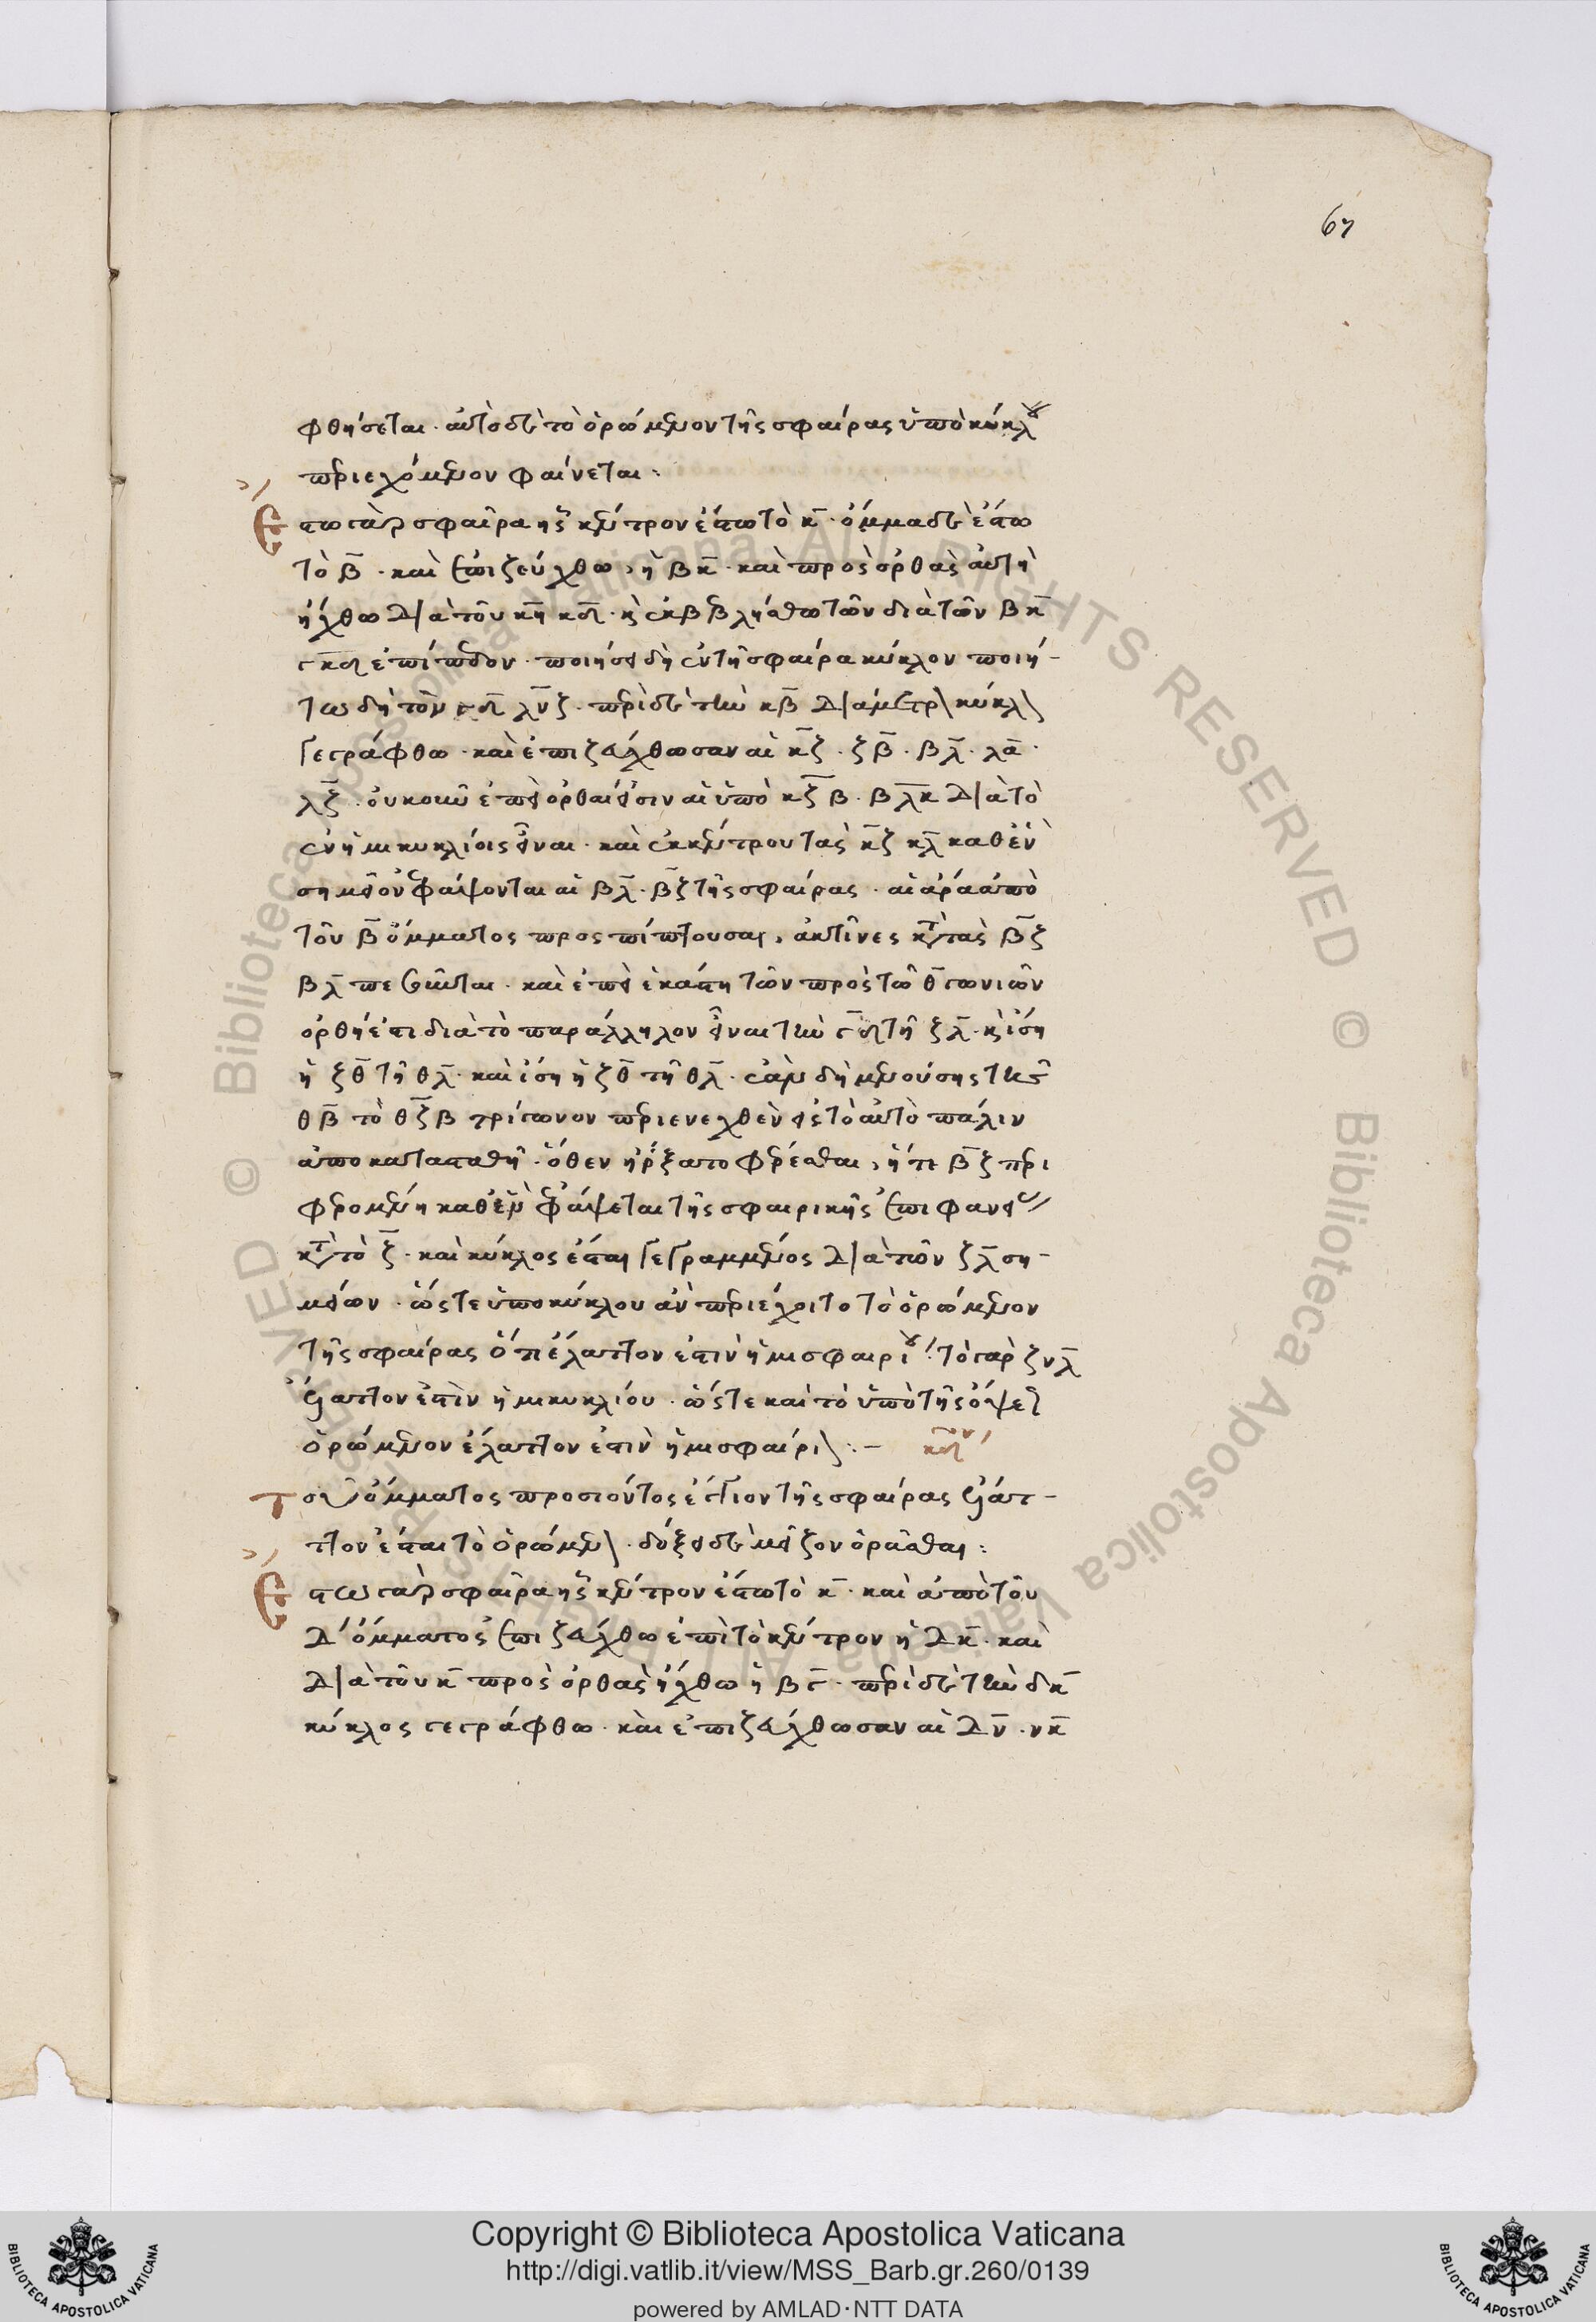 67
φθήσεται· αὐτὸ δὲ τὸ ὁρώμενον τῆς σφαίρας ὑπὸ κύκλου
περιεχόμενον φαίνεται:
Ἔστω γὰρ σφαῖρα ἧς κέντρον ἔστω τὸ κ̅· ὄμμα δὲ ἔστω
τὸ β̅· καὶ ἐπιζεύχθω, ἡ βκ̅· καὶ πρὸς ὀρθὰς αὐτῇ
ἤχθω διὰ τοῦ κ̅ ἡ · κὶ ἐκβεβλήσθω τῶν διὰ τῶν βκ̅
ἐπίπεδον· ποιήσει δὴ ἐν τῇ σφαίρα κύκλον ποιή-
τω δὴ τὸν λν̅ζ· περὶ δὲ τὴν κβ̅ διάμετρον κύκλος
γεγράφθω· καὶ ἐπιζεύχθωσαν αἱ κ̅ζ· ζβ̅· βλ̅· λα̅·
λζ̅· οὐκοῦν ἐπεὶ ὀρθαί εἰσιν αἱ ὑπὸ κζ̅β· βλ̅κ διὰ τὸ
ἐν ἡμικυκλίοις εἶναι· καὶ ἐκ κέντρου τὰς κ̅ζ κλ̅ καθ' ἓν
σημεῖον ἐφάψονται αἱ βλ̅· β̅ζ τῆς σφαίρας· αἱ ἄρα ἀπὸ
τοῦ β̅ ὄμματος προσπίπτουσαι, ἀκτῖνες κατὰ τὰς β̅ζ
βλ̅ πεσοῦνται· καὶ ἐπεὶ ἑκάστη τῶν πρὸς τῶ θ̅ γωνιῶν
ὀρθή ἐστι διὰ τὸ παράλληλον εἶναι τὴν τῇ ζλ̅· κὶ ἴση
ἡ ζθ̅ τῇ θλ̅· καὶ ἴση ἡ ζθ̅ τῇ θλ̅· ἐὰν δὴ μενούσης τῆς
θβ̅ τὸ θζ̅β τρίγωνον περιενεχθὲν εἰς τὸ αὐτὸ πάλιν
ἀποκατασταθῇ· ὅθεν ἤρξατο φέρεσθαι, ἥ τε β̅ζ περι
φερομένη καθ' ἓν ἐφάψεται τῆς σφαιρικῆς ἐπιφανείας
κατὰ τὸ ζ̅· καὶ κύκλος ἔσται γεγραμμένος διὰ τῶν ζλ̅ ση-
μείων· ὥστε ὑπὸ κύκλου ἂν περιέχοιτο τὸ ὁρώμενον
τῆς σφαίρας ὅτι ἔλαττον ἐστὶν ἡμισφαιρίου· τὸ γὰρ ζνλ̅
ἔλαττον ἐστὶν ἡμικυκλίου· ὥστε καὶ τὸ ὑπὸ τῆς ὄψεως
ὁρώμενον ἔλαττον ἐστὶν ἡμισφαιρίου:–
Τοῦ ὄμματος προσιόντος ἔγγιον τῆς σφαίρας ἔλατ-
τον ἔσται τὸ ὁρώμενον· δόξει δὲ μεῖζον ὁρᾶσθαι:
Ἔστω γὰρ σφαῖρα ἧς κέντρον ἔστω τὸ κ̅· καὶ ἀπὸ τοῦ
δ ὄμματος ἐπιζεύχθω ἐπὶ τὸ κέντρον ἡ δκ̅· καὶ
διὰ τοῦ κ̅ πρὸς ὀρθὰς ἤχθω ἡ βγ̅· περὶ δὲ τὴν δκ̅
κύκλος γεγράφθω· καὶ ἐπιζεύχθωσαν αἱ δν̅· νκ̅
Copyright © Biblioteca Apostolica Vaticana
http://digi.vatlib.it/view/MSS_Barb.gr.260/0139
powered by AMLAD·NTT DATA